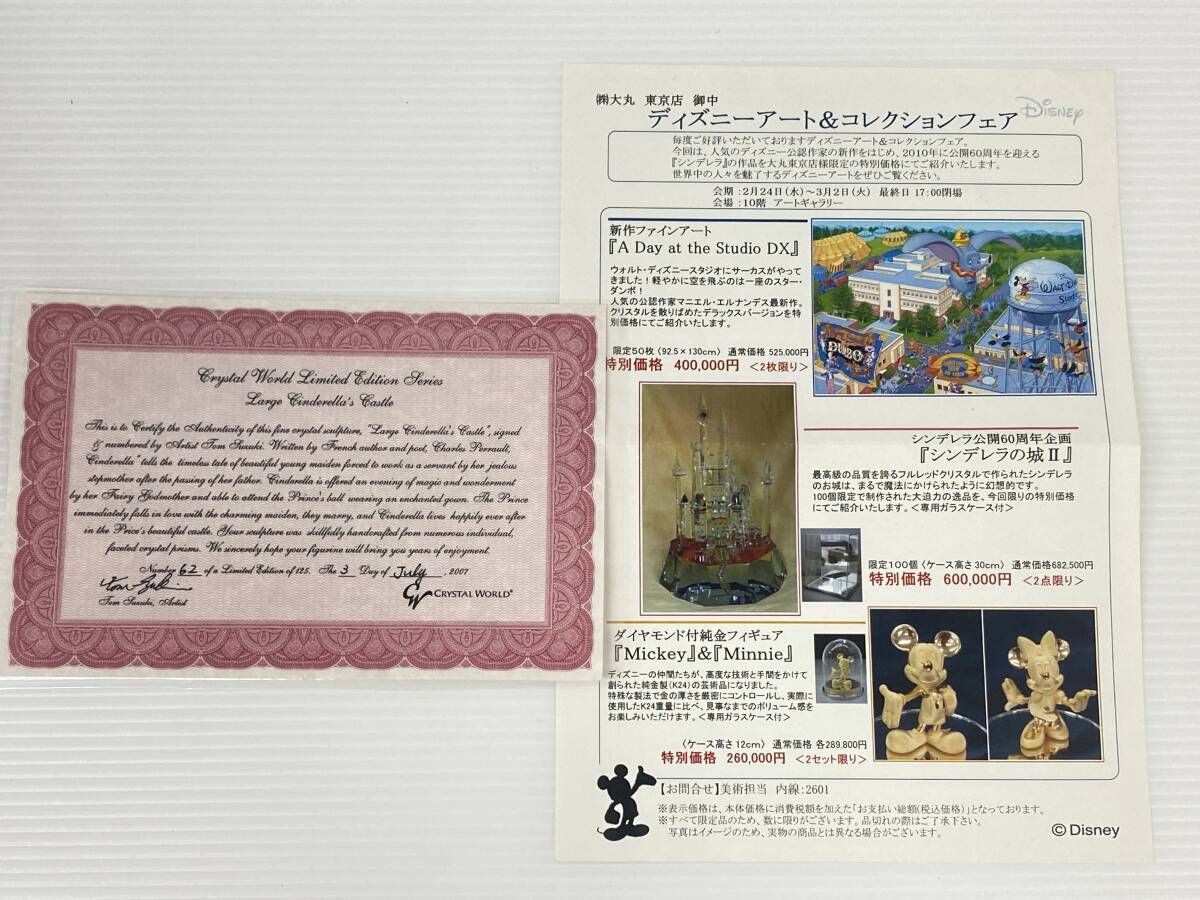 Crystal World Limited Edition Series
Large Cinderella's Castle
This is to Certify the Authenticity of this fine crystal sculpture, "Large Cinderella's Castle", signed
& numbered by Artist Tom Suzuki. Written by French author and poet, Charles Perrault,
Cinderella" tells the timeless tale of beautiful young maiden forced to work as a servant by her jealous
stepmother after the passing of her father. Cinderella is offered an evening of magic and wonderment
by her Fairy Godmother and able to attend the Prince's ball wearing an enchanted gown. The Prince
immediately falls in love with the charming maiden, they marry, and Cinderella lives happily ever after
in the Price's beautiful castle. Your sculpture was skillfully handcrafted from numerous individual,
faceted crystal prisms. We sincerely hope your figurine will bring you years of enjoyment.
Number 62 of a Limited Edition of 125. The 3 Day of July, 2007
Tom Suzuki, Artist
CW CRYSTAL WORLD®
㈱大丸 東京店 御中
ディズニーアート&コレクションフェア
Disney
毎度ご好評いただいておりますディズニーアート&コレクションフェア。
今回は、人気のディズニー公認作家の新作をはじめ、2010年に公開60周年を迎える
『シンデレラ』の作品を大丸東京店様限定の特別価格にてご紹介いたします。
世界中の人々を魅了するディズニーアートをぜひご覧ください。
会期:2月24日(水)~3月2日(火) 最終日 17:00閉場
会場:10階 アートギャラリー
新作ファインアート
『A Day at the Studio DX』
ウォルト・ディズニースタジオにサーカスがやって
きました!軽やかに空を飛ぶのは一座のスター・
ダンボ!
人気の公認作家マニエル・エルナンデス最新作。
クリスタルを散りばめたデラックスバージョンを特
別価格にてご紹介いたします。
限定50枚 (92.5×130cm) 通常価格 525,000円
特別価格 400,000円 <2枚限り>
DUMBO
シンデレラ公開60周年企画
『シンデレラの城Ⅱ』
最高級の品質を誇るフルレッドクリスタルで作られたシンデレラ
のお城は、まるで魔法にかけられたように幻想的です。
100個限定で制作された大迫力の逸品を、今回限りの特別価格
にてご紹介いたします。<専用ガラスケース付>
限定100個 (ケース高さ30cm) 通常価格682,500円
特別価格 600,000円 <2点限り>
ダイヤモンド付純金フィギュア
『Mickey』&『Minnie』
ディズニーの仲間たちが、高度な技術と手間をかけて
創られた純金製(K24)の芸術品になりました。
特殊な製法で金の厚さを厳密にコントロールし、実際に
使用したK24重量に比べ、見事なまでのボリューム感を
お楽しみいただけます。<専用ガラスケース付>
(ケース高さ12cm) 通常価格 各289,800円
特別価格 260,000円 <2セット限り>
【お問合せ】美術担当 内線:2601
※表示価格は、本体価格に消費税額を加えた「お支払い総額(税込価格)」となっております。
※すべて限定品のため、数に限りがございます。品切れの際はご了承下さい。
写真はイメージのため、実物の商品とは異なる場合がございます。
©Disney